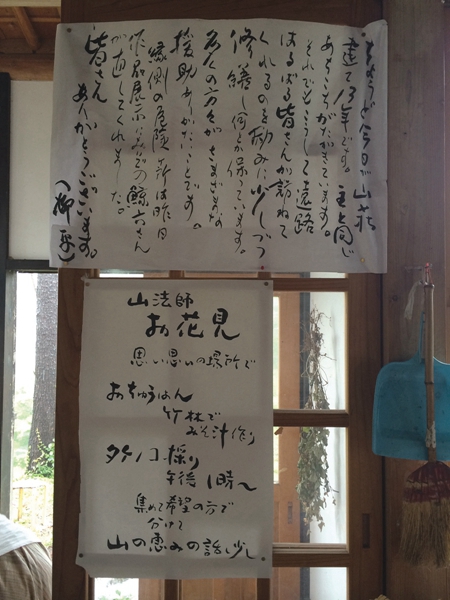 ちょうど今日が山荘
建て13年です。主と同じ
あちこちがたがきています。
それでもこうして遠路
はるばる皆さんが訪ねて
くれるのを励みに少しづつ
修繕し何とか保っています。
多くの方々がさまざまな
援助ありがたいことです。
縁側の危険ヶ所は昨日
作品展示の鯨六さん
が直してくれました。
皆さん
ありがとうございます。
(柳平)
山法師
お花見
思い思いの場所で
おちゅうはん
竹林で
みそ汁作り
タケノコ採り
午後1時〜
集めて希望の方で
分けて
山の恵みの話し少し